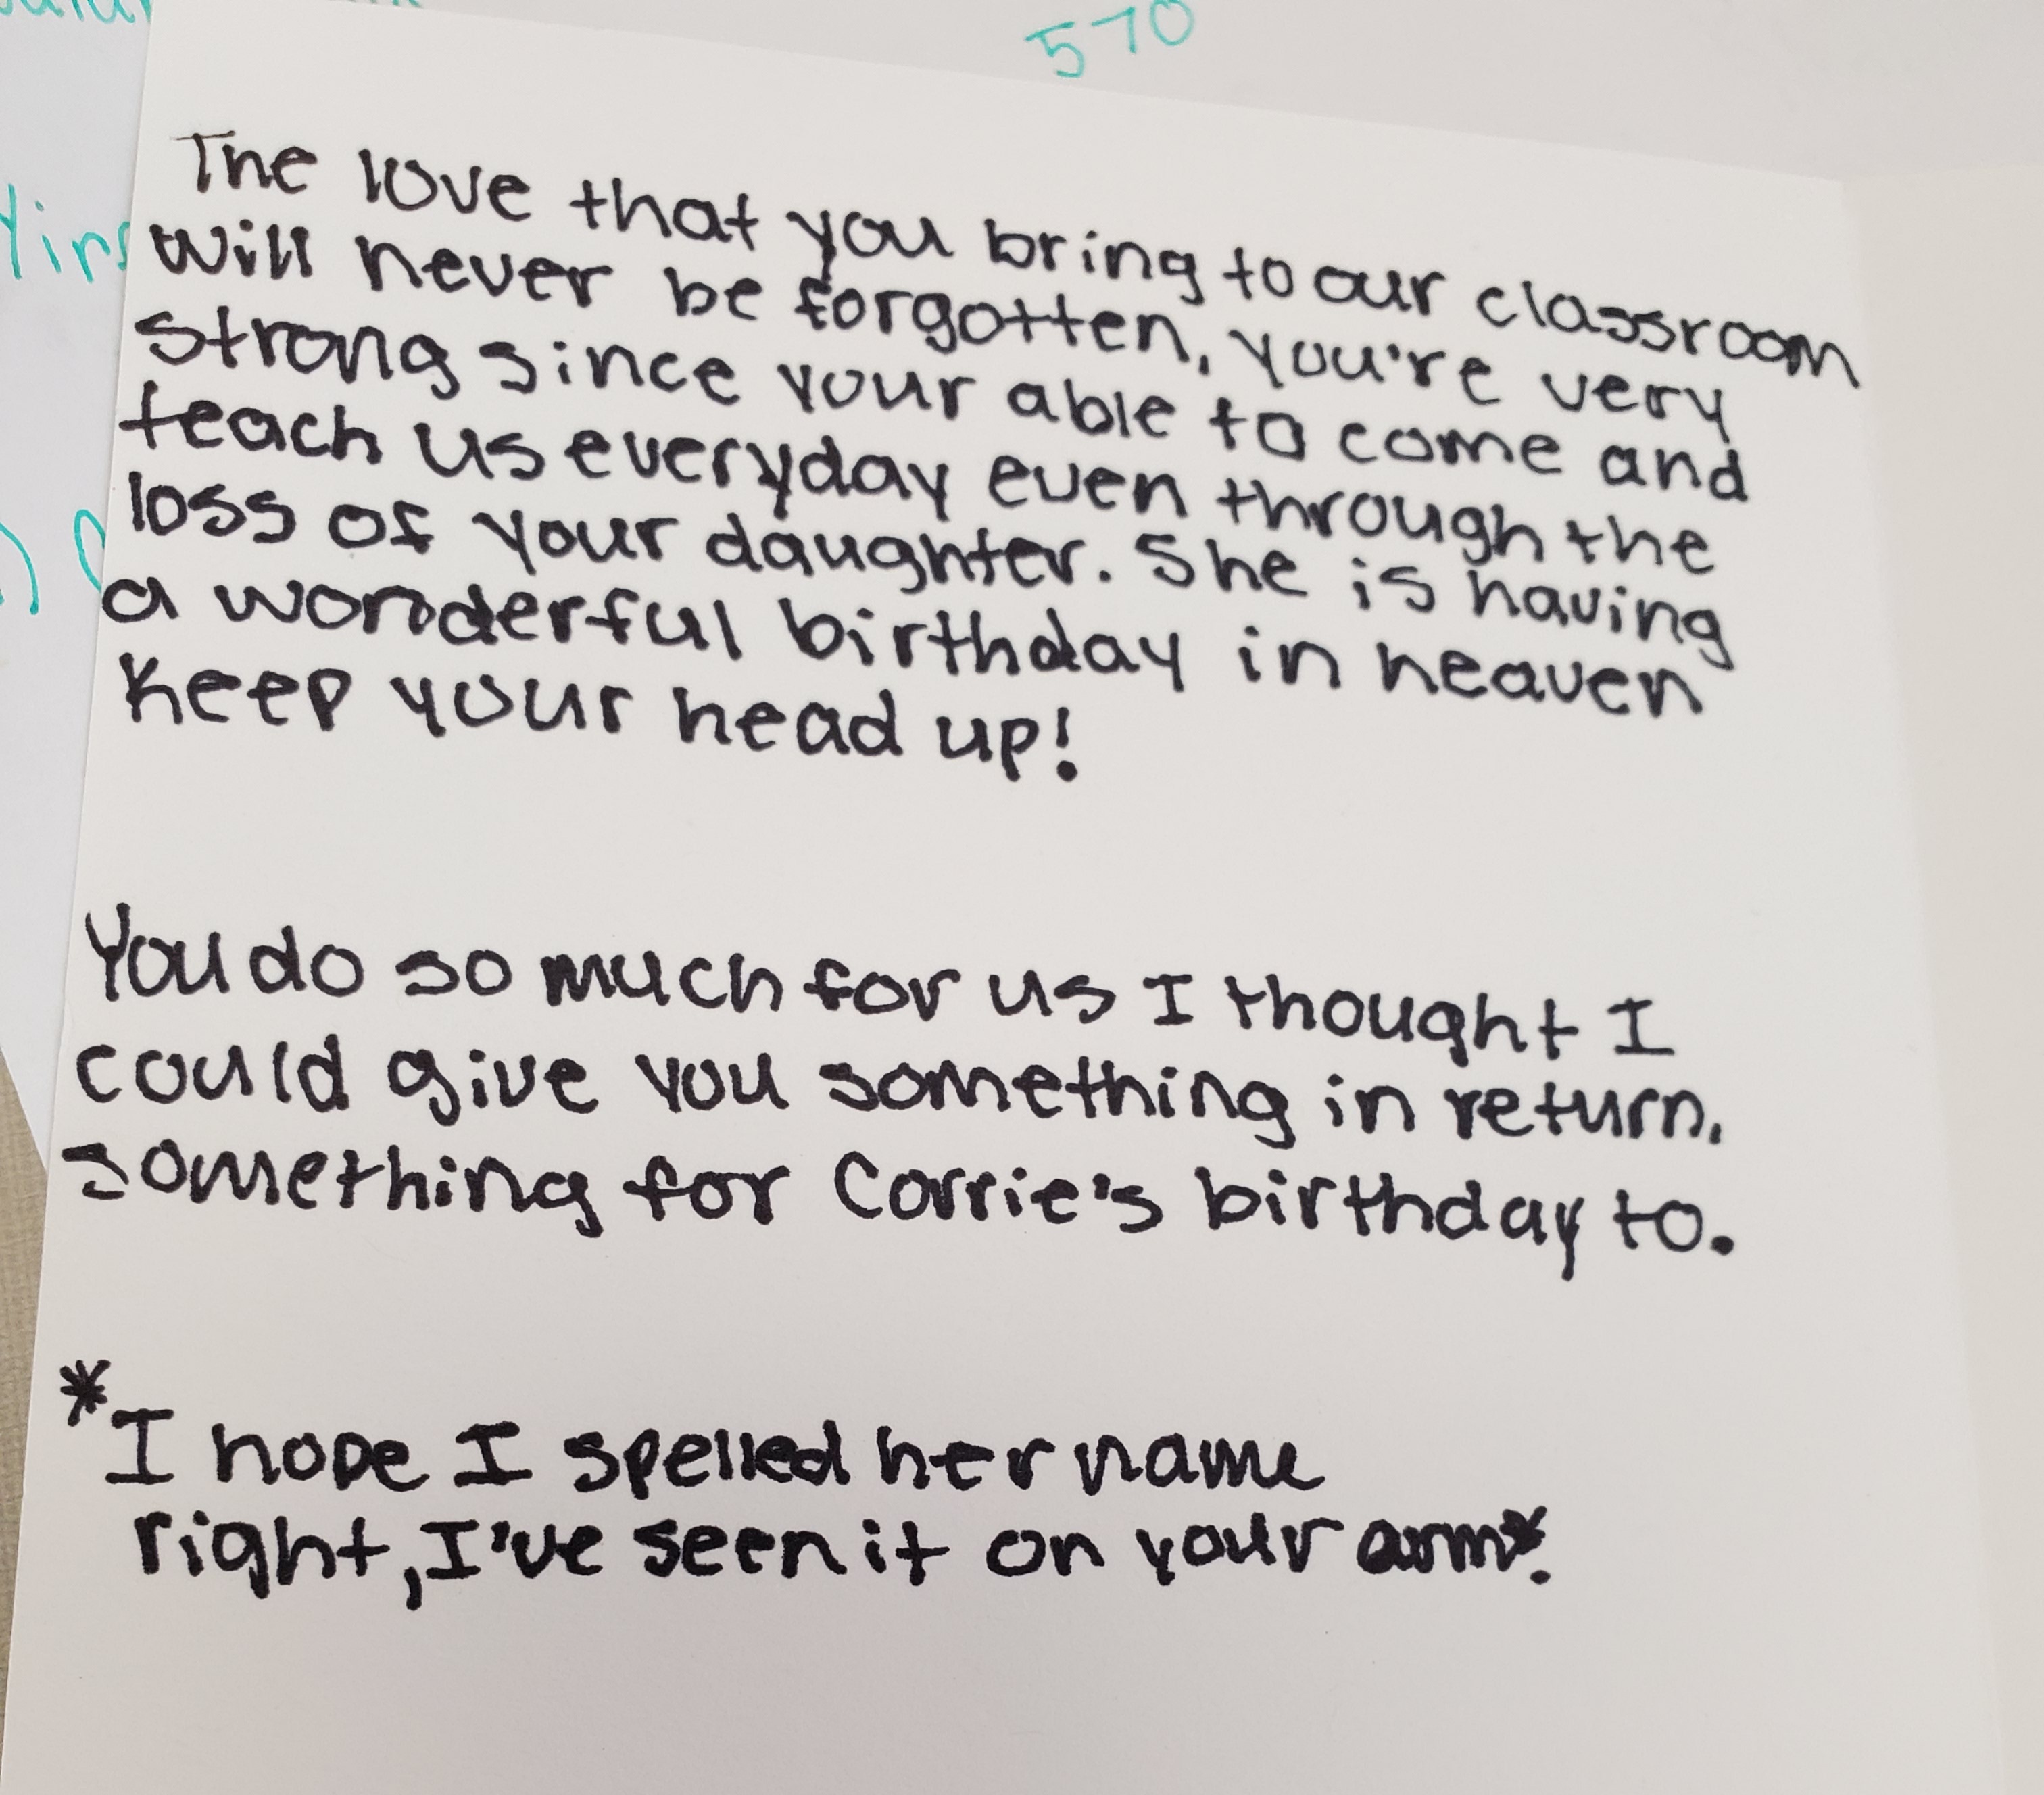 570
The love that you bring to our classroom
will never be forgotten, you're very
strong since your able to come and
teach us everyday even through the
loss of your daughter. She is having
a wonderful birthday in heaven
keep your head up!
You do so much for us I thought I
could give you something in return.
something for Corrie's birthday to.
*I hope I spelled her name
right, I've seen it on your arm*.